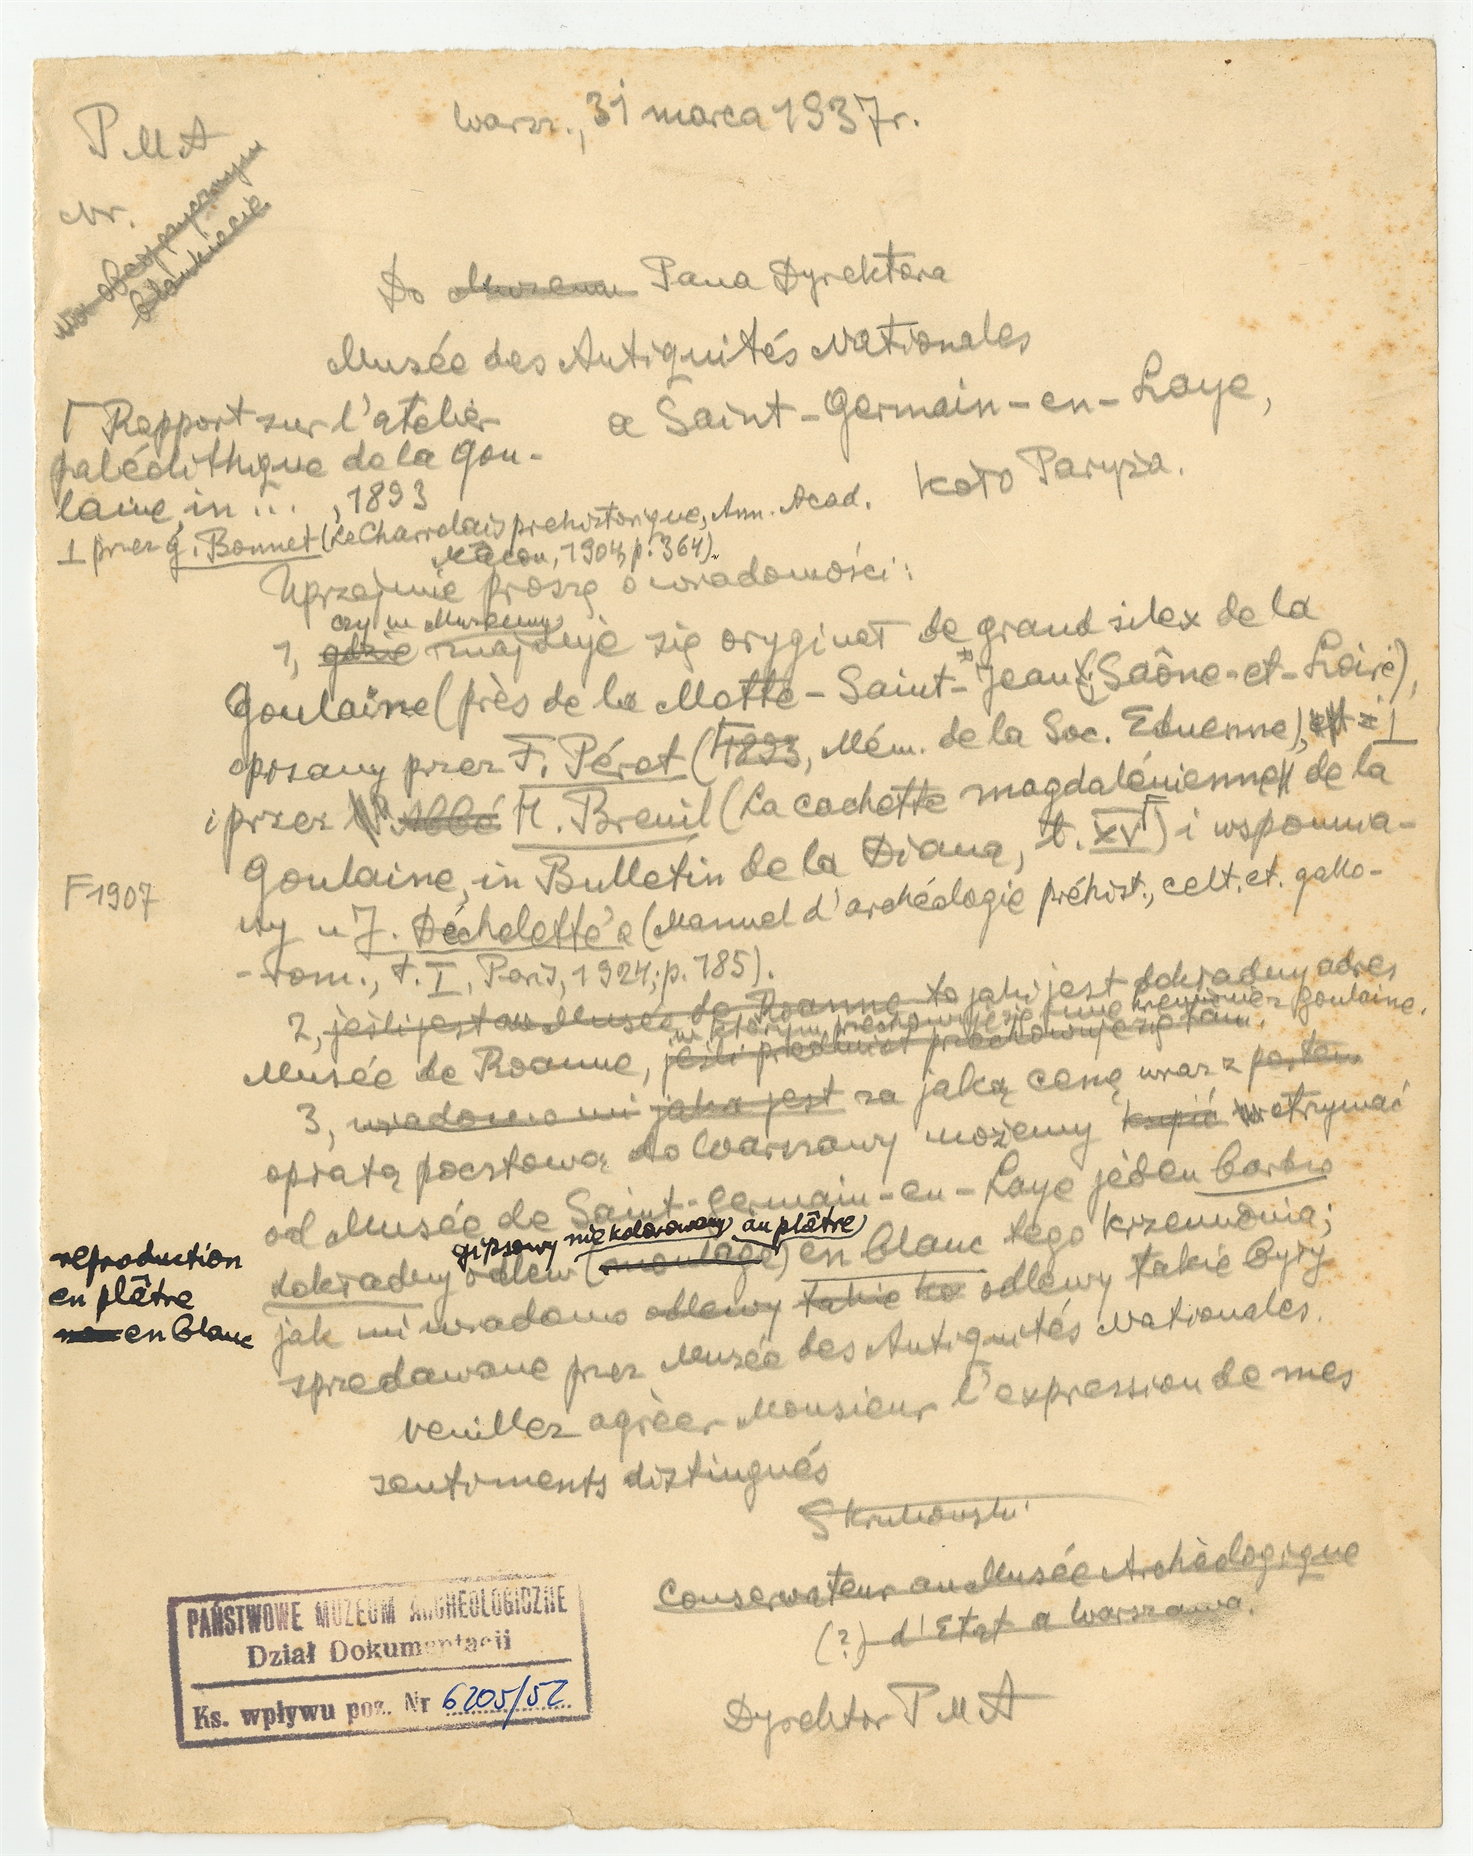 PMA
Warsz., 31 marca 1937r.
Nr.
na obcojęzycznym
blankiecie
Do Muzeum Pana Dyrektora
Musée des Antiquités Nationales
a Saint-Germain-en-Laye,
koło Paryża.
Γ Rapport sur l'atelier
paléolithique de la Gou-
laine, in ... , 1893
⊥ przez G. Bonnet (Le Charolais prehistorique, Ann. Acad.
Mâcon, 1904, p. 364).
Uprzejmie proszę o wiadomości:
czy w Muzeum
1, gdzie znajduje się oryginał de grand silex de la
Goulaine (près de la Motte-Saint-Jean (Saône-et-Loire),
opisany przez F. Pérot (Γ1893, Mém. de la Soc. Eduenne), ⊥
i przez Abbé H. Breuil (La cachette magdalénienne de la
Goulaine, in Bulletin de la Diana, t. XV Γ) i wspomnia-
Γ 1907
ny u J. Déchelette'a (Manuel d'archéologie préhist., celt. et. gallo-
-rom., t. I, Paris, 1924; p. 185).
2, jeśli jest au Musée de Roanne to jaki jest dokładny adres
w którym przechowuje się inne krzemienie z Goulaine.
Musée de Roanne, jeśli przedmiot przechowuje się tam.
3, wiadomo mi jaka jest za jaką cenę wraz z portem
opłatą pocztową do Warszawy możemy kupić otrzymać
od Musée de Saint-Germain-en-Laye jeden bardzo
gipsowy nie kolorowany au plâtre
dokładny odlew (moulage) en blanc tego krzemienia;
reproduction
en plâtre
en blanc
jak mi wiadomo odlewy takie to odlewy takie były
sprzedawane przez Musée des Antiquités Nationales.
Veuillez agréer Monsieur l'expression de mes
sentiments distingués
SKrukowski
Conserwateur au Musée Archéologique
(?) d'Etat a Warszawa.
Dyrektor PMA
PAŃSTWOWE MUZEUM ARCHEOLOGICZNE
Dział Dokumentacji
Ks. wpływu poz. Nr 6205/52